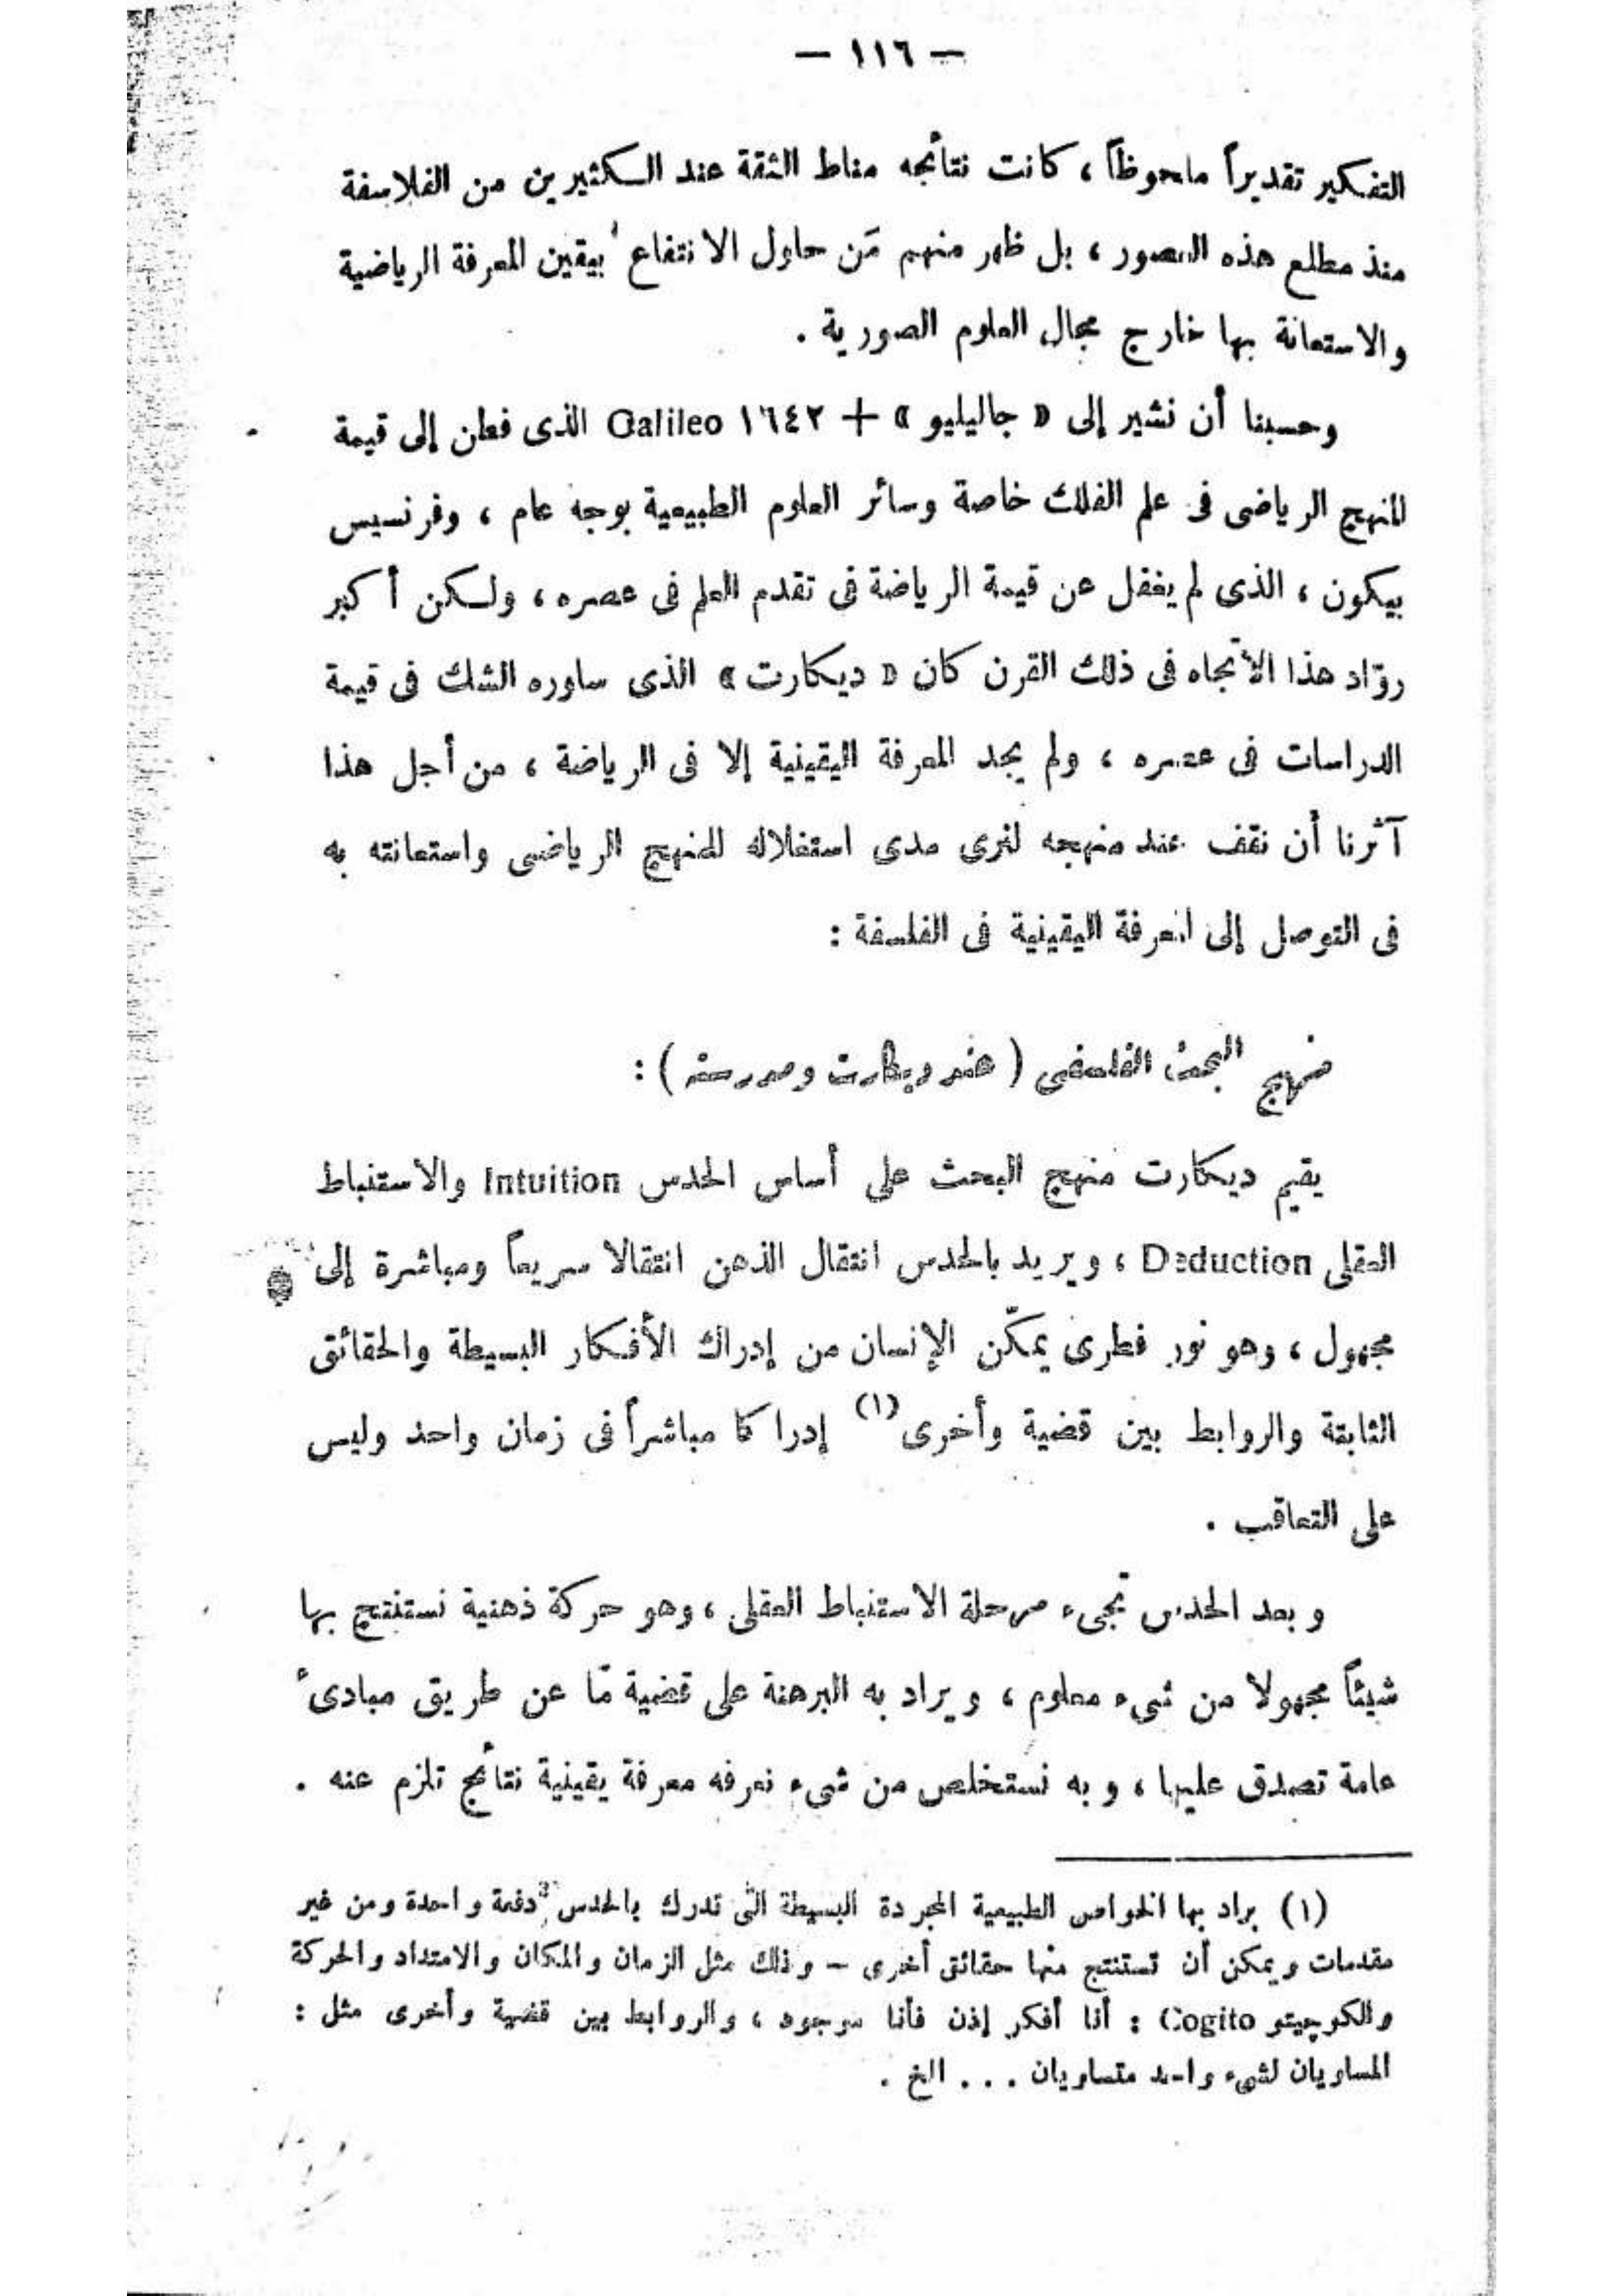 — ١١٦ —
التفكير تقديراً ملحوظاً ، كانت نتائجه مناط الثقة عند الكثيرين من الفلاسفة
منذ مطلع هذه العصور ، بل ظهر منهم مَن حاول الانتفاع بيقين المعرفة الرياضية
والاستعانة بها خارج مجال العلوم الصورية .
وحسبنا أن نشير إلى « جاليليو » + ١٦٤٢ Galileo الذى فطن إلى قيمة
المنهج الرياضى فى علم الفلك خاصة وسائر العلوم الطبيعية بوجه عام ، وفرنسيس
بيكون ، الذى لم يغفل عن قيمة الرياضة فى تقدم العلم فى عصره ، ولكن أكبر
روّاد هذا الاتجاه فى ذلك القرن كان « ديكارت » الذى ساوره الشك فى قيمة
الدراسات فى عصره ، ولم يجد المعرفة اليقينية إلا فى الرياضة ، من أجل هذا
آثرنا أن نقف عند منهجه لنرى مدى استغلاله للمنهج الرياضى واستعانته به
فى التوصل إلى المعرفة اليقينية فى الفلسفة :
منهج البحث الفلسفى ( عند ديكارت ومدرسته ) :
يقيم ديكارت منهج البحث على أساس الحدس Intuition والاستنباط
العقلى Deduction ، ويريد بالحدس انتقال الذهن انتقالا سريعاً ومباشرة إلى
مجهول ، وهو نور فطرى يمكّن الإنسان من إدراك الأفكار البسيطة والحقائق
الثابتة والروابط بين قضية وأخرى (١) إدراكا مباشراً فى زمان واحد وليس
على التعاقب .
وبعد الحدس تجىء مرحلة الاستنباط العقلى ، وهو حركة ذهنية نستنتج بها
شيئاً مجهولا من شىء معلوم ، ويراد به البرهنة على قضية مّا عن طريق مبادىء
عامة تصدق عليها ، وبه نستخلص من شىء نعرفه معرفة يقينية نتائج تلزم عنه .
(١) يراد بها الخواص الطبيعية المجردة البسيطة التى تدرك بالحدس دفعة واحدة ومن غير
مقدمات ويمكن أن تستنتج منها حقائق أخرى — وذلك مثل الزمان والمكان والامتداد والحركة
والكوجيتو Cogito : أنا أفكر إذن فأنا موجود ، والروابط بين قضية وأخرى مثل :
المساويان لشىء واحد متساويان . . . الخ .